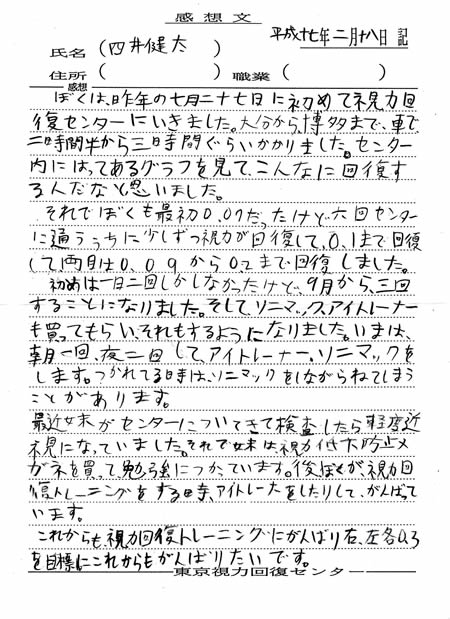 感想文
平成十七年二月十八日 記
氏名(四井健太)
住所( ) 職業( )
感想
ぼくは、昨年の七月二十七日に初めて視力回
復センターにいきました。大分から、博多まで、車で、
二時間半から三時間ぐらいかかりました。センター
内にはってあるグラフを見て、こんなに回復す
るんだなと思いました。
それでぼくも最初0.07だったけど六回センター
に通ううちに少しずつ視力が回復して、0.1まで回復
して、両目は0.09から0.2まで回復しました。
初めは一日二回しかしなかったけど、9月から、三回
することになりました。そして、ソニマック、アイトレーナー
も買ってもらい、それもするようになりました。いまは、
朝一回、夜二回して、アイトレーナー、ソニマックを
します。つかれてる時は、ソニマックをしながらねてしまう
ことがあります。
最近妹がセンターについてきて検査したら軽度近
視になっていました。それで妹は、視力低下防止メ
ガネを買って、勉強につかっています。後ぼくが、視力回
復トレーニングをする時、アイトレーナーをしたりして、がんばって
います。
これからも、視力回復トレーニングにがんばり右、左各0.3
を目標にこれからもがんばりたいです。
東京視力回復センター